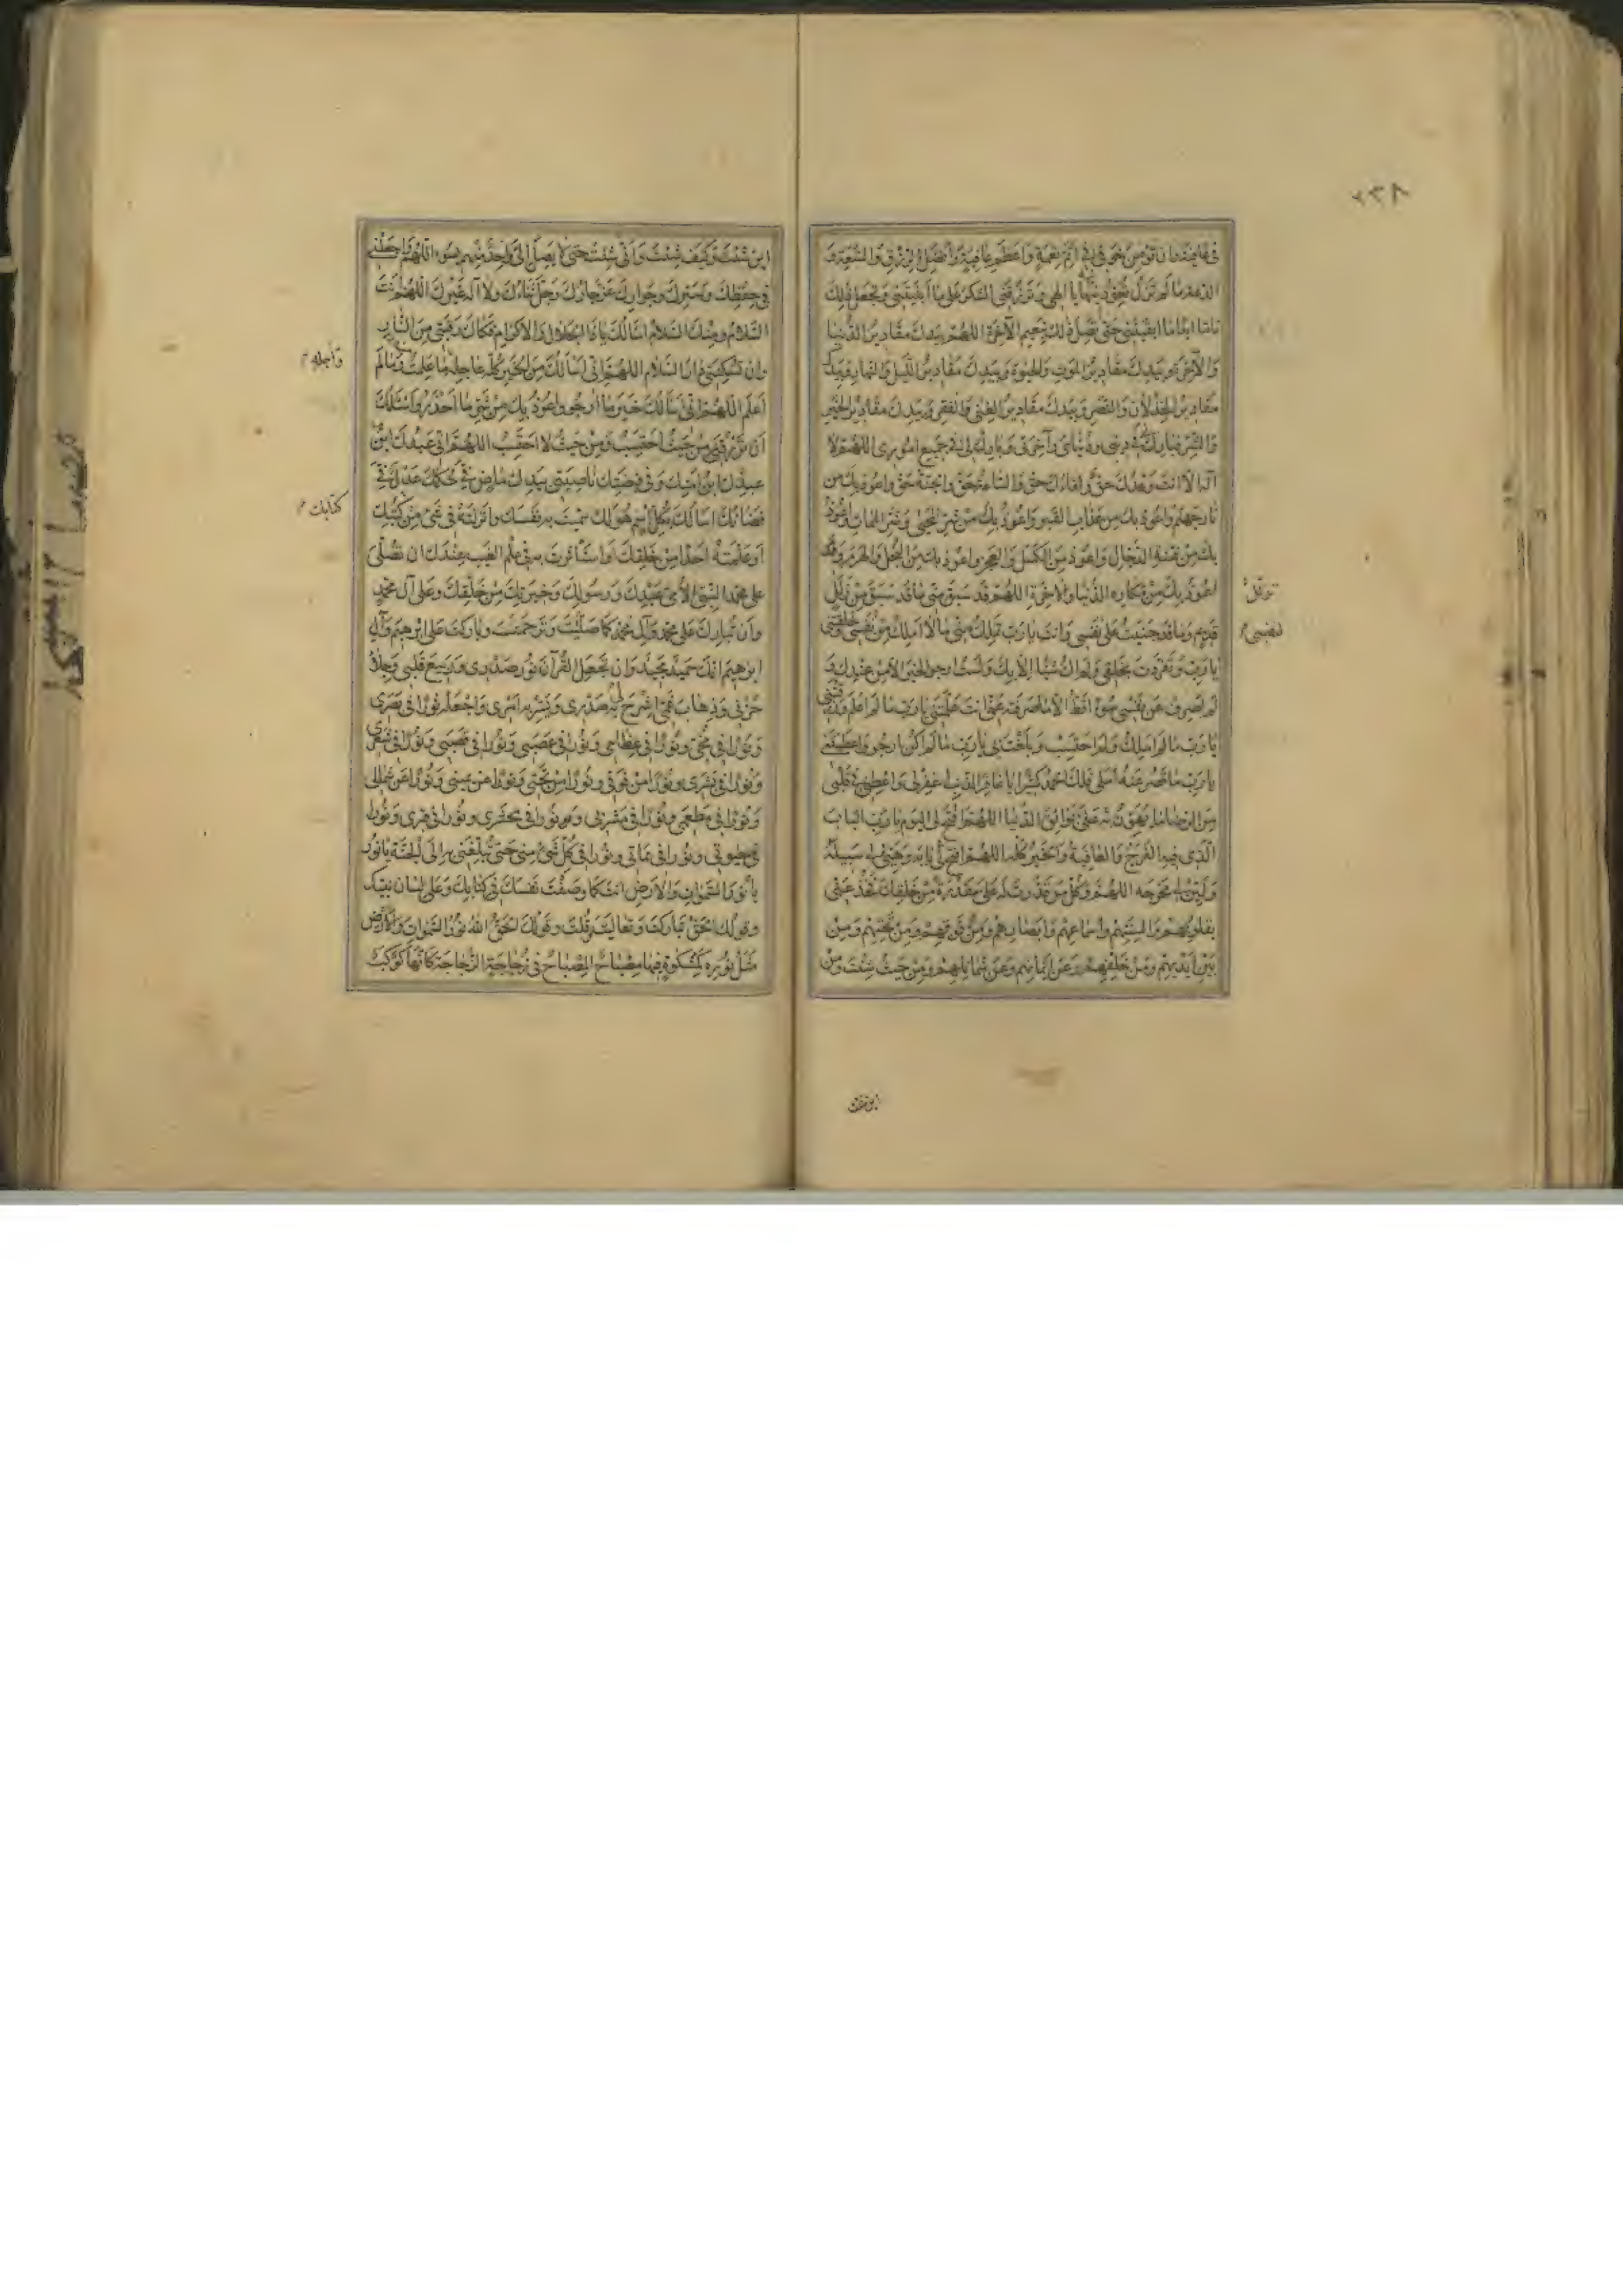 في فاقتي وان تؤمن خوفي في اتم نعمة واعظم عافية وافضل الرزق والسعة و
الدعة ما لم تزل تعودنيها يا الهي وترزقني الشكر على ما ابليتني وتجعل ذلك
تاما ابدا ما ابقيتني حتى تصل ذلك بنعيم الآخرة اللهم بيدك مقادير الدنيا
والآخرة وبيدك مقادير الموت والحيوة وبيدك مقادير الليل والنهار وبيدك
مقادير الخذلان والنصر وبيدك مقادير الغنى والفقر وبيدك مقادير الخير
والشر فبارك لي في ديني ودنياي وآخرتي وبارك لي في جميع اموري اللهم لا
اله الا انت وعدك حق ولقاءك حق والساعة حق والجنة حق واعوذ بك من
نار جهنم واعوذ بك من عذاب القبر واعوذ بك من شر المحيى وشر الممات واعوذ
بك من فتنة الدجال واعوذ بك من الكسل والعجز واعوذ بك من البخل والهرم و
اعوذ بك من مكاره الدنيا والآخرة اللهم قد سبق مني ما قد سبق من زلل
قديم وما قد جنيت على نفسي وانت يا رب تملك مني ما لا املك من نفسي وخلقتني
يا رب وتفردت بخلقي ولم اك شيئا الا بك ولست ارجو الخير الا من عندك و
لم اصرف عن نفسي سوء قط الا ما صرفته عني انت علمتني يا رب ما لم اعلم ورزقتني
يا رب ما لم املك ولم احتسب وبلغت بي يا رب ما لم اكن ارجو واعطيتني
يا رب ما قصر عنه املي فلك الحمد كثيرا يا غافر الذنب اغفر لي واعطني في قلبي
من الرضا ما يهون به علي بوائق الدنيا اللهم افتح لي اليوم يا رب الباب
الذي فيه الفرج والعافية والخير كله اللهم افتح لي بابه وهيئ لي سبيله
ولين لي مخرجه اللهم وكل من قدرت له علي مقدرة من خلقك فخذ عني
بقلوبهم والسنتهم واسماعهم وابصارهم ومن فوقهم ومن تحتهم ومن
بين ايديهم ومن خلفهم وعن ايمانهم وعن شمائلهم ومن حيث شئت ومن
نفسي
اين شئت وكيف شئت وانى شئت حتى لا يصل الي واحد منهم بسوء اللهم واجعلني
في حفظك وسترك وجوارك عز جارك وجل ثناءك ولا اله غيرك اللهم انت
السلام ومنك السلام اسالك يا ذا الجلال والاكرام فكاك رقبتي من النار
وان تسكنني دار السلام اللهم اني اسالك من الخير كله عاجله ما علمت وما لم
اعلم اللهم اني اسالك خير ما ارجو واعوذ بك من شر ما احذر واسئلك
ان ترزقني من حيث احتسب ومن حيث لا احتسب اللهم اني عبدك ابن
عبدك ابن امتك وفي قبضتك ناصيتي بيدك ماض في حكمك عدل في
قضاءك اسالك بكل اسم هو لك سميت به نفسك وانزلته في شيء من كتبك
او علمته احدا من خلقك او استأثرت به في علم الغيب عندك ان تصلي
على محمد النبي الامي عبدك ورسولك وخيرتك من خلقك وعلى آل محمد
وان تبارك على محمد وآل محمد كما صليت وترحمت وباركت على ابرهيم وآل
ابرهيم انك حميد مجيد وان تجعل القرآن نور صدري وربيع قلبي وجلاء
حزني وذهاب غمي واشرح لي به صدري ويسر به امري واجعله نورا في بصري
ونورا في مخي ونورا في عظامي ونورا في عصبي ونورا في قصبي ونورا في شعري
ونورا في بشري ونورا من فوقي ونورا من تحتي ونورا عن يميني ونورا عن شمالي
ونورا في مطعمي ونورا في مشربي ونورا في محشري ونورا في قبري ونورا
في حيوتي ونورا في مماتي ونورا في كل شيء مني حتى تبلغني به الى الجنة يا نور
يا نور السموات والارض انت كما وصفت نفسك في كتابك وعلى لسان نبيك
وقولك الحق تباركت وتعاليت وقلت وقولك الحق الله نور السموات والارض
مثل نوره كمشكوة فيها مصباح المصباح في زجاجة الزجاجة كانها كوكب
وآجله
كتابك